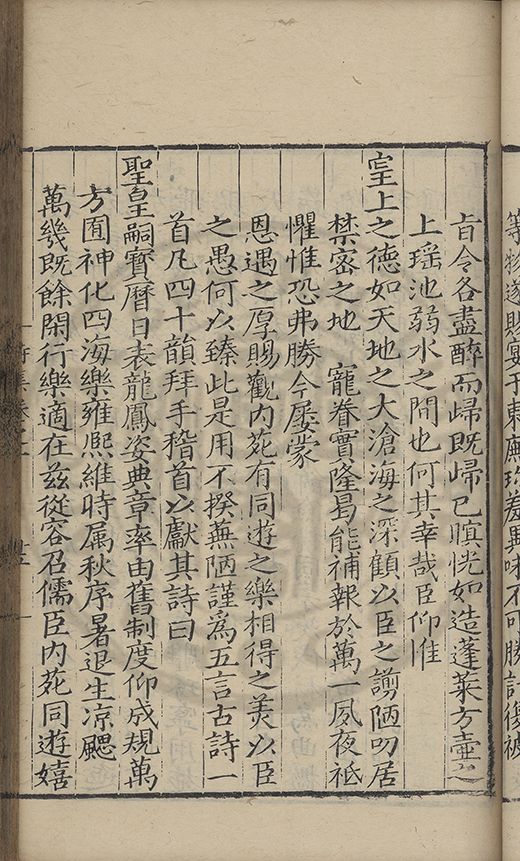 等物遂賜宴于東廡珍羞異味不可勝計復被
旨令各盡醉而歸既歸已瞋恍如造蓬萊方壺之
上瑤池弱水之間也何其幸哉臣仰惟
皇上之德如天地之大滄海之深顧以臣之謭陋叨居
禁密之地　寵眷實隆曷能補報於萬一夙夜祗
懼惟恐弗勝今屡蒙
恩遇之厚賜觀内苑有同遊之樂相得之美以臣
之愚何以臻此是用不揆蕪陋謹爲五言古詩一
首凡四十韻拜手稽首以獻其詩曰
聖皇嗣寶曆日表龍鳳姿典章率由舊制度仰成規萬
方囿神化四海樂雍熈維時属秋序暑退生凉颸
萬幾既餘閑行樂適在兹從容召儒臣内苑同遊嬉